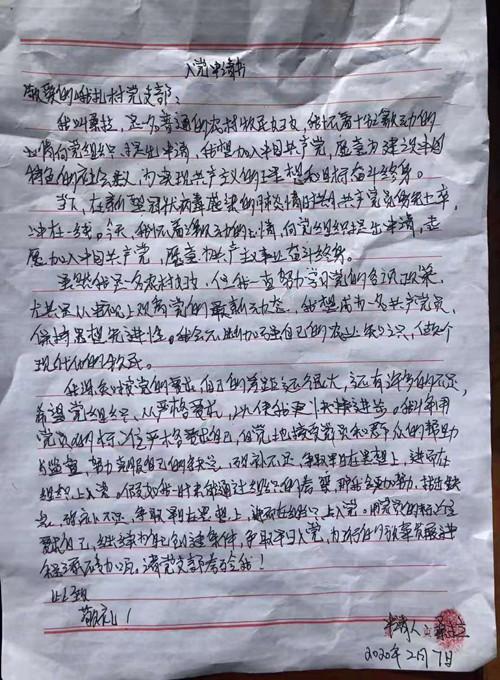 入党申请书
敬爱的 村党支部：
我叫 ，是一名普通的农村牧民妇女，我怀着十分激动的
心情向党组织提出申请，我想加入中国共产党，愿意为建设中国
特色的社会 ，为实现共产主义的理想和目标奋斗终身。
当下，在新型冠状病毒感染的肺炎疫情时期，共产党员
冲在一线。今天，我怀着激动的心情，向党组织提出申请，志
愿加入中国共产党，愿意为共产主义事业奋斗终身。
虽然我是一名农村妇女，但我一直努力学习党的各项政策，
尤其是从 以上 党的最新动态，我想成为一名共产党员，
保持思想先进性。我会不断加强自己的农业知识，做个
现代化的牧民。
我深知按党的要求，自己的差距还很大，还有许多的不足，
希望党组织从严格要求，以使我更快 进步。我将用
党员的标准严格要求自己，自觉地接受党员和群众的帮助
与监督，努力克服自己的缺点，弥补不足，争取早日在思想上，进而在
组织上入党。 我 通过组织的考察，那我 努力，
点，弥补不足，争取 在思想上，进而在组织上入党。用党员的标准
要求自己，继续 创造条件，争取早日入党，为 的 事业发展进
程 不 力。请党支部考验我！
此致
敬礼！
申请人：
2020年2月7日